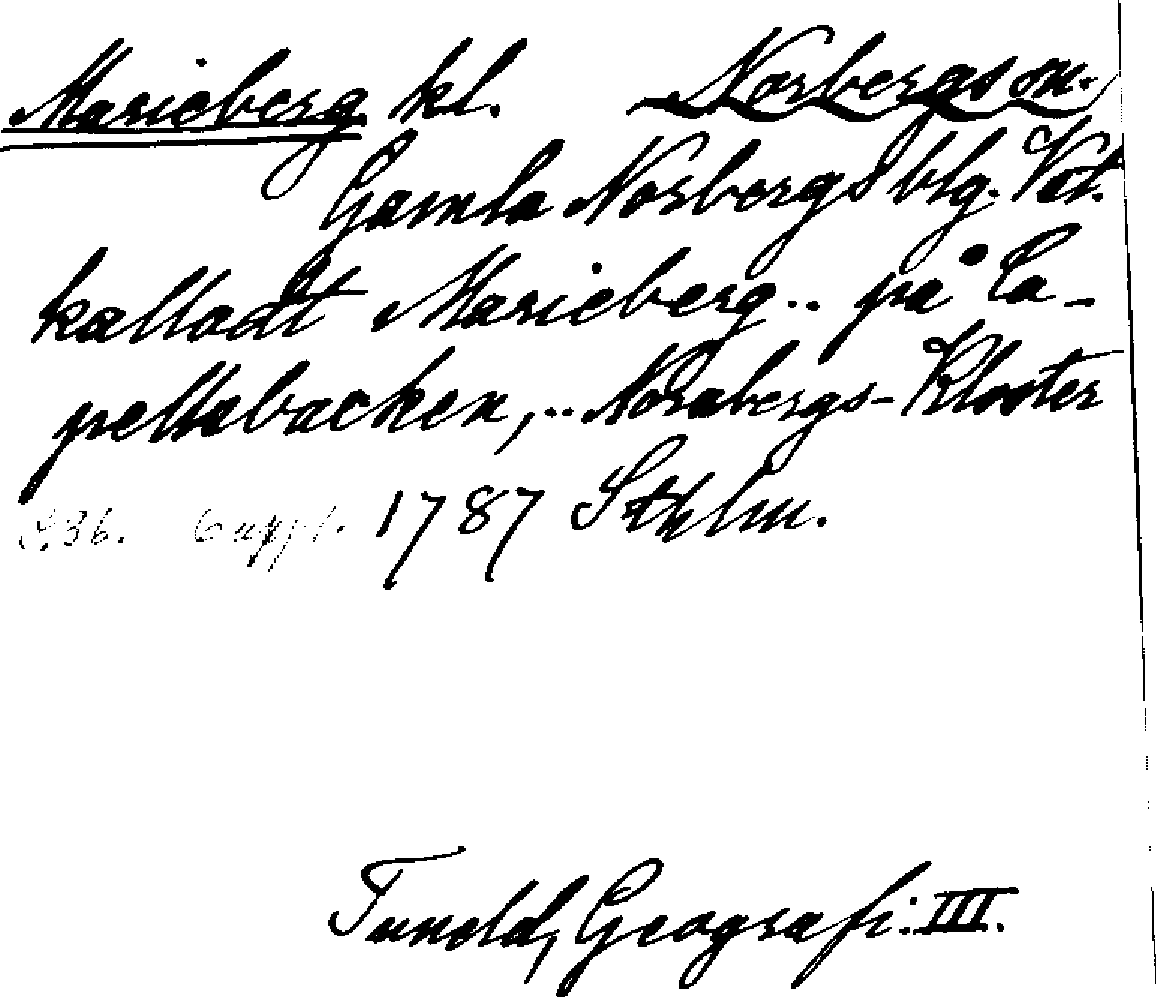 Marieberg kl. Norbergs sn.
Gamla Norbergs blg. Vstm.
kalladt Marieberg.. på Ca-
pellsbacken, .. Norabergs-Kloster
S. 36. 6 uppl. 1787 Sthlm.
Tuneld, Geografi. III.